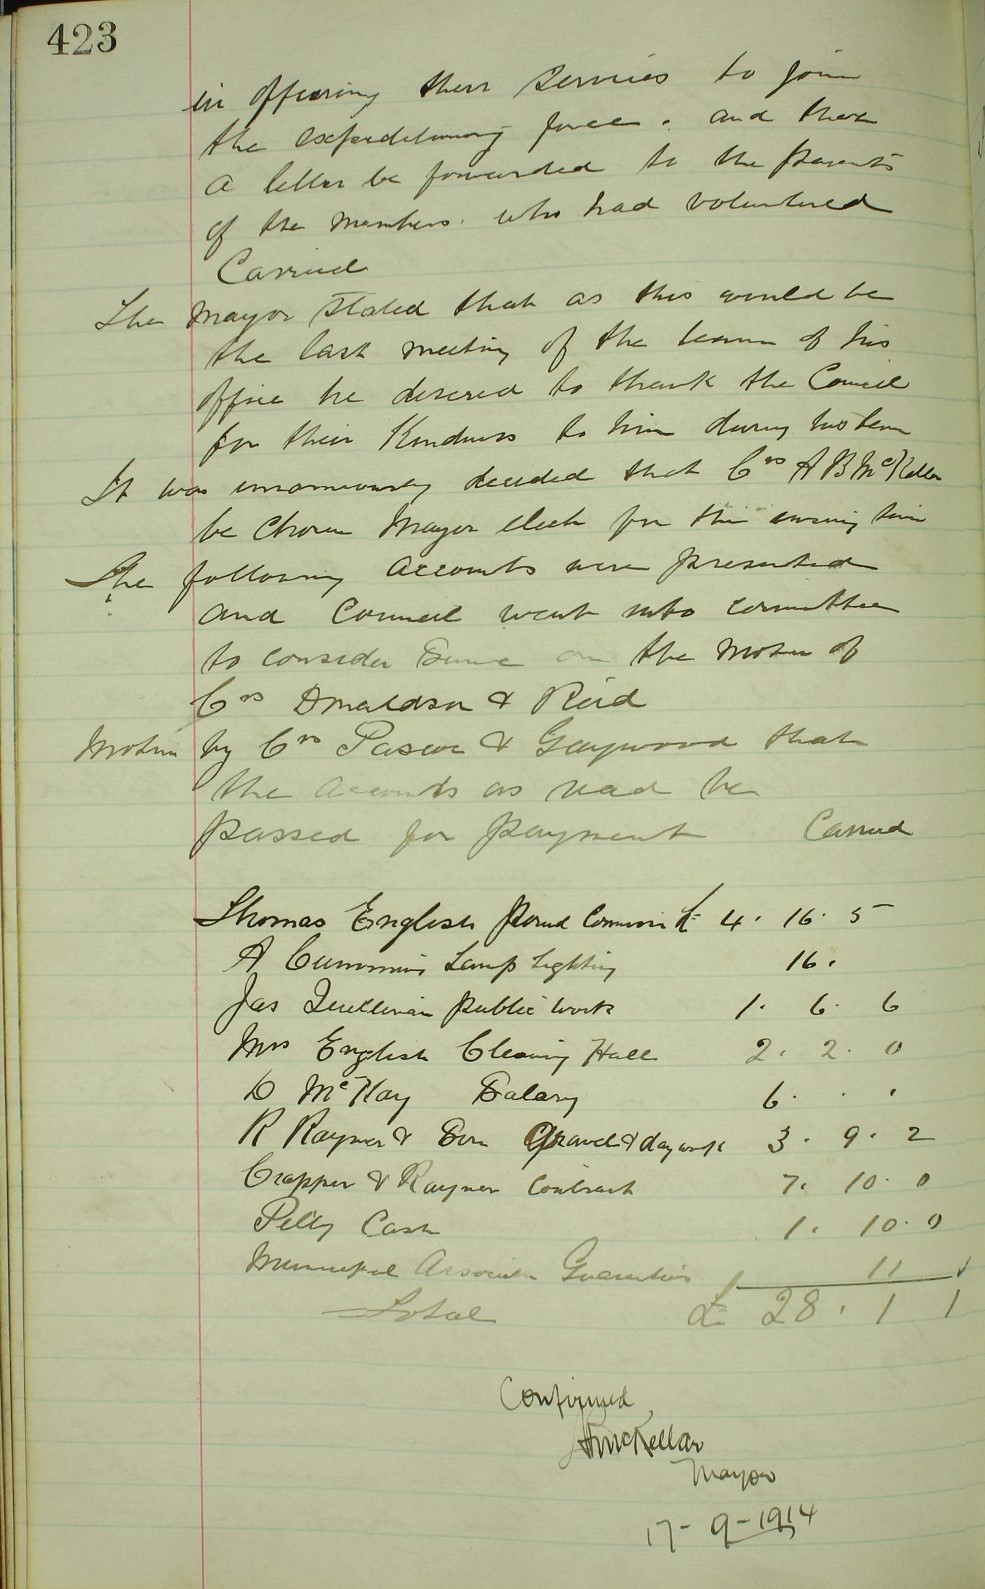 423
in offering their services to join
the expeditionary force. and that
a letter be forwarded to the parents
of the members. who had voluntered
Carried
The Mayor stated that as this would be
the last meeting of the term of his
office he desired to thank the Council
for their Kindness to him during his term
It was unanimously decided that Crs A B McKellar
be chosen Mayor elect for the ensuing term
The following accounts were presented
and Council went into committee
to consider same on the motion of
Crs Donaldson & Reid
Motion by Crs Pascoe & Gaywood that
the accounts as read be
passed for payment Carried
Thomas English Pound Commis £ 4. 16. 5
A Cummins Lamp Lighting 16.
Jas Quillinan public work 1. 6. 6
Mrs English Cleaning Hall 2. 2. 0
D McKay Salary 6. . .
R Rayner & Son Gravel & day work 3. 9. 2
Crapper & Rayner contract 7. 10. 0
Petty Cash 1. 10. 0
Municipal Associatn Guarantee 11
Total £ 28. 1 1
Confirmed
McKellar
Mayor
17-9-1914